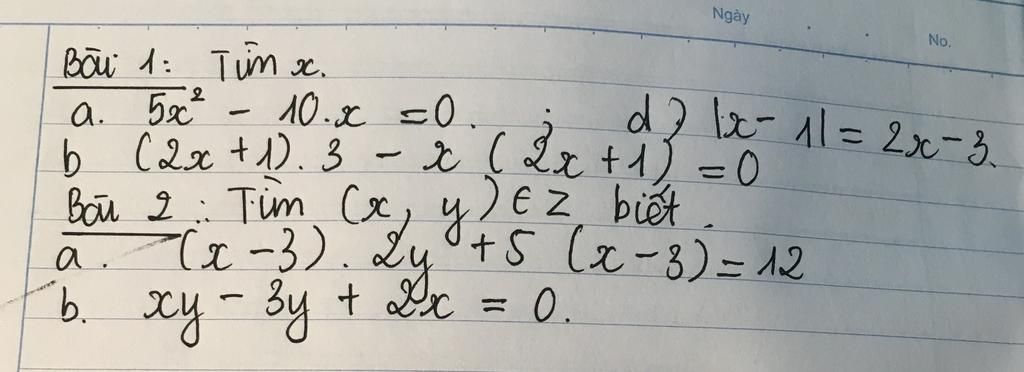 Ngày
No.
Bài 1: Tìm x.
a. 5x² - 10.x = 0. ; d) |x - 1| = 2x - 3.
b (2x + 1). 3 - x (2x + 1) = 0
Bài 2 : Tìm (x, y) ∈ Z biết.
a. (x - 3). 2y + 5 (x - 3) = 12
b. xy - 3y + 2x = 0.